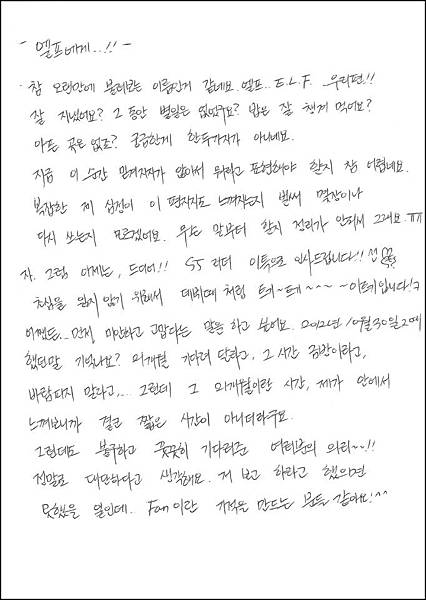 - 엘프에게...!! -
참 오랜만에 불러보는 이름인거 같네요. 엘프... E.L.F. 우리편!!
잘 지냈어요? 그 동안 별일은 없었구요? 밥은 잘 챙겨 먹어요?
아픈 곳은 없죠? 궁금한게 한두가지가 아니네요.
지금 이 순간 믿겨지지가 않아서 뭐라고 표현해야 할지 참 어렵네요.
복잡한 제 심정이 이 편지지도 느껴지는지 벌써 몇장이나
다시 쓰는지 모르겠어요. 무슨 말부터 할지 정리가 안되서 그래요. ㅠㅠ
자. 그럼 이제는, 드디어!! SJ 리더 이특으로 인사드립니다!!
초심을 잃지 않기 위해서 데뷔때 처럼 트키~트키~~~~이트키입니다!?
어쨌든... 먼저 미안하고 고맙다는 말을 하고 싶어요. 2012년 10월 30일 2때
했던말 기억나요? 21개월 기다려 달라고, 그 시간 금방이라고,
바람피지 말라고,... 그런데 그 21개월이란 시간, 제가 안에서
느껴보니까 결코 짧은 시간이 아니더라구요.
그럼에도 불구하고 꿋꿋히 기다려준 여러분의 의리~~!!
정말로 대단하다고 생각해요. 저 보고 하라고 했으면
못했을 일인데. Fan이란 기적을 만드는 분들 같아요!^^